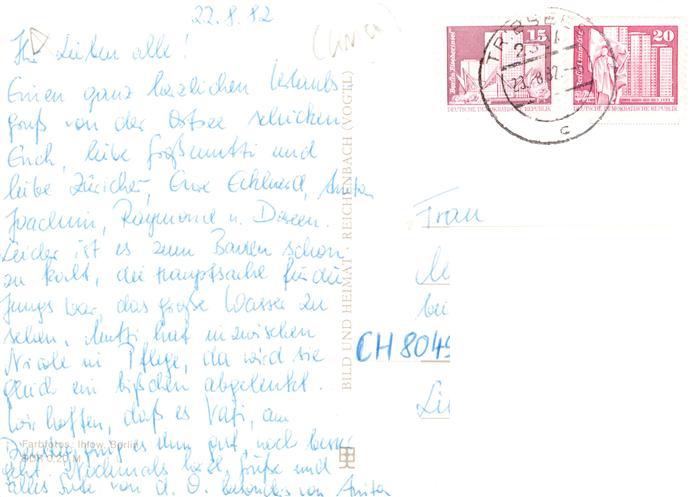 22.8.82
Ihr Lieben alle!
Einen ganz herzlichen Urlaubs-
gruß von der Ostsee schicken
Euch, liebe Großmutti und
liebe Züricher, Eure Eckhard, Anita
Joachim, Raymond u. Doreen.
Leider ist es zum Baden schon
zu kalt, die Hauptsache für die
Jungs war, das große Wasser zu
sehen. Mutti hat inzwischen
Nicole in Pflege, da wird sie
gleich ein bißchen abgelenkt.
Wir hoffen, daß es Vati, am
ging es ihm gut, noch besser
geht. Nochmals herzl. Grüße und
alles Gute von d. O. besonders von Anita
Farbfotos: Ihlow, Berlin
0,20 M
BILD UND HEIMAT · REICHENBACH (VOGTL)
15
DEUTSCHE DEMOKRATISCHE REPUBLIK
20
DEUTSCHE DEMOKRATISCHE REPUBLIK
23.-8.82.
c
Frau
bei
CH 8049